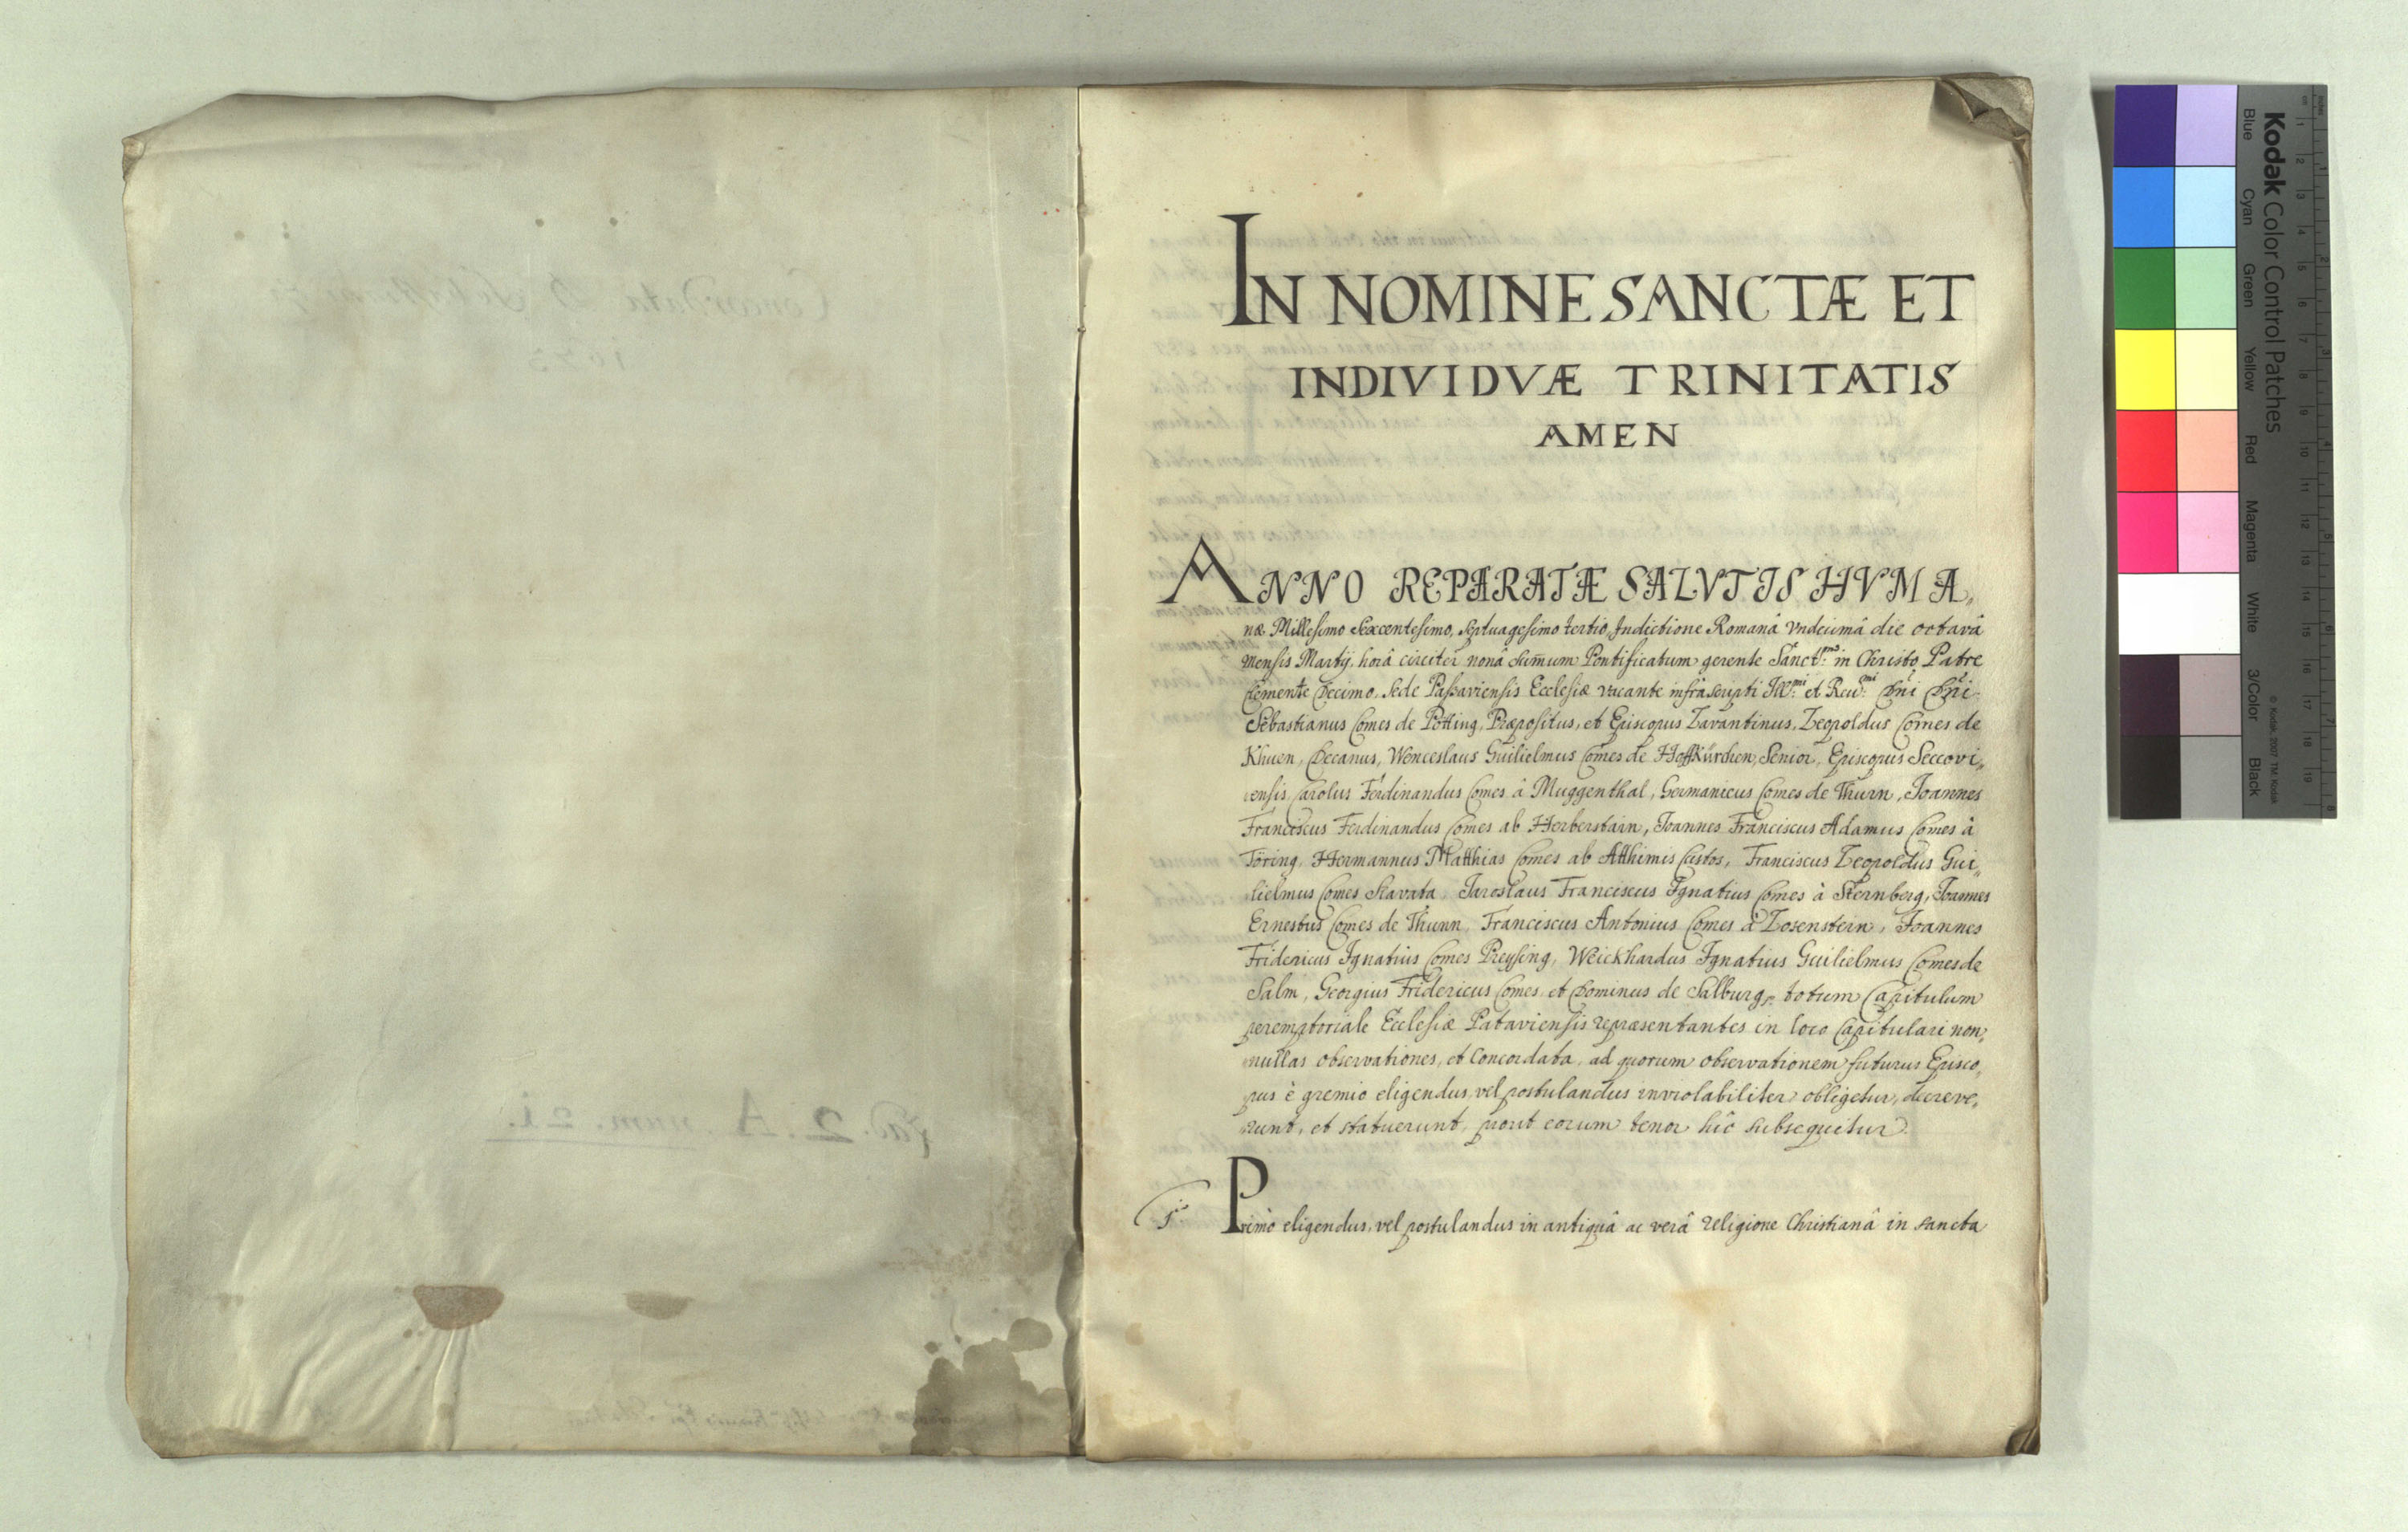 IN NOMINE SANCTÆ ET
INDIVIDVÆ TRINITATIS
AMEN
ANNO REPARATÆ SALVTIS HVMA„
næ Millesimo Sexcentesimo, septuagesimo tertio, Indictione Romanâ Vndecimâ die octavâ
mensis Martij, horâ circiter nonâ sum̄um Pontificatum gerente Sanct.mo in Christo Patre
Clemente Decimo, Sede Passaviensis Ecclesiæ vacante infrà scripti Ill.mi et Reu.mi Dn̄i Dn̄i
Sebastianus Comes de Pötting, Præpositus, et Episcopus Lavantinus, Leopoldus Comes de
Khuen, Decanus, Wenceslaus Guilielmus Comes de Hoffkürchen, Senior, Episcopus Seccovi„
ensis, Carolus Ferdinandus Comes â Muggenthal, Germanicus Comes de Thurn, Joannes
Franciscus Ferdinandus Comes ab Herberstain, Joannes Franciscus Adamus Comes â
Töring, Hermannus Matthias Comes ab Atthimis Custos, Franciscus Leopoldus Gui„
lielmus Comes Slavata, Jaroslaus Franciscus Ignatius Comes à Sternberg, Joannes
Ernestus Comes de Thunn, Franciscus Antonius Comes à Losenstein, Joannes
Fridericus Ignatius Comes Preysing, Weickhardus Ignatius Guilielmus Comes de
Salm, Georgius Fridericus Comes et Dominus de Salburg, totum Capitulum
peremptoriale Ecclesiæ Pataviensis repræsentantes in loco Capitulari non„
nullas observationes, et Concordata, ad quorum observationem futurus Episco„
pus è gremio eligendus, vel postulandus inviolabiliter obligetur, decreve„
runt, et statuerunt, prout eorum tenor hîc subsequitur.
Primò eligendus, vel postulandus in antiquâ ac verâ religione Christianâ in sancta
Kodak Color Control Patches
Blue Cyan Green Yellow Red Magenta White 3/Color Black
© Kodak, 2007 TM: Kodak